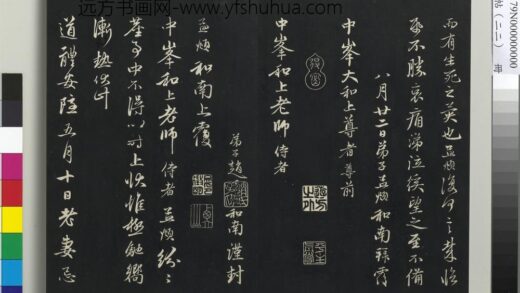 远方书画网-www.yfshuhua.com
79N000000000
帖(二二)
而有生死之異也孟頫復何言哉臨
紙不勝哀痛涕泣俟望之至不備
八月廿二日弟子孟頫和南拜覆
中峯大和上尊者尊前
中峯和上老師 侍者
弟子趙 和南謹封
孟頫和南上覆
中峯和上老師 侍者 孟頫紛々
塵事中不得以時上狀惟極馳嚮
漸熱伏惟
道體安隱五月十日老妻忌